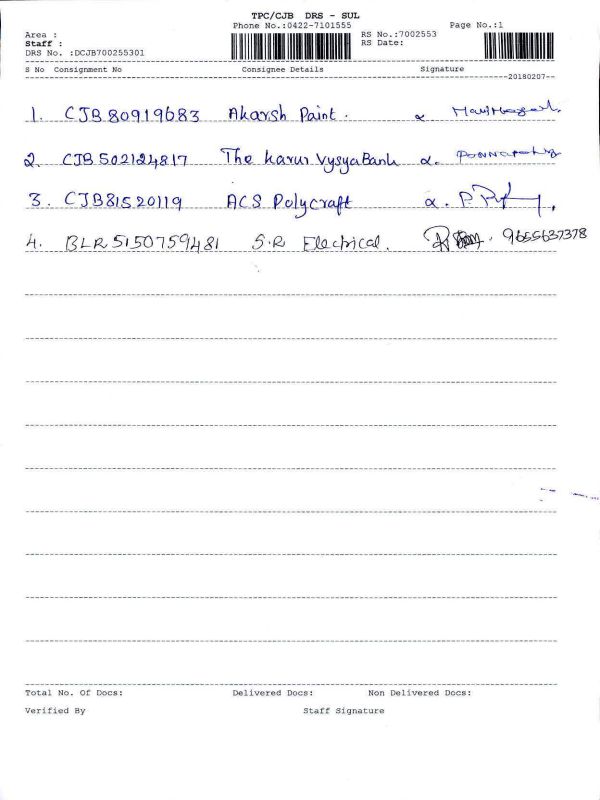 TPC/CJB DRS - SUL
Phone No.:0422-7101555 Page No.:1
Area : RS No.:7002553
Staff : RS Date:
DRS No. :DCJB700255301
S No Consignment No Consignee Details Signature
20180207
1. CJB 80919683 Akarsh Paint.
2. CJB 502124817 The Karur Vysya Bank
3. CJB81520119 ACS Polycraft
4. BLR 5150759481 S.R Electrical. 9655637378
Total No. Of Docs: Delivered Docs: Non Delivered Docs:
Verified By Staff Signature